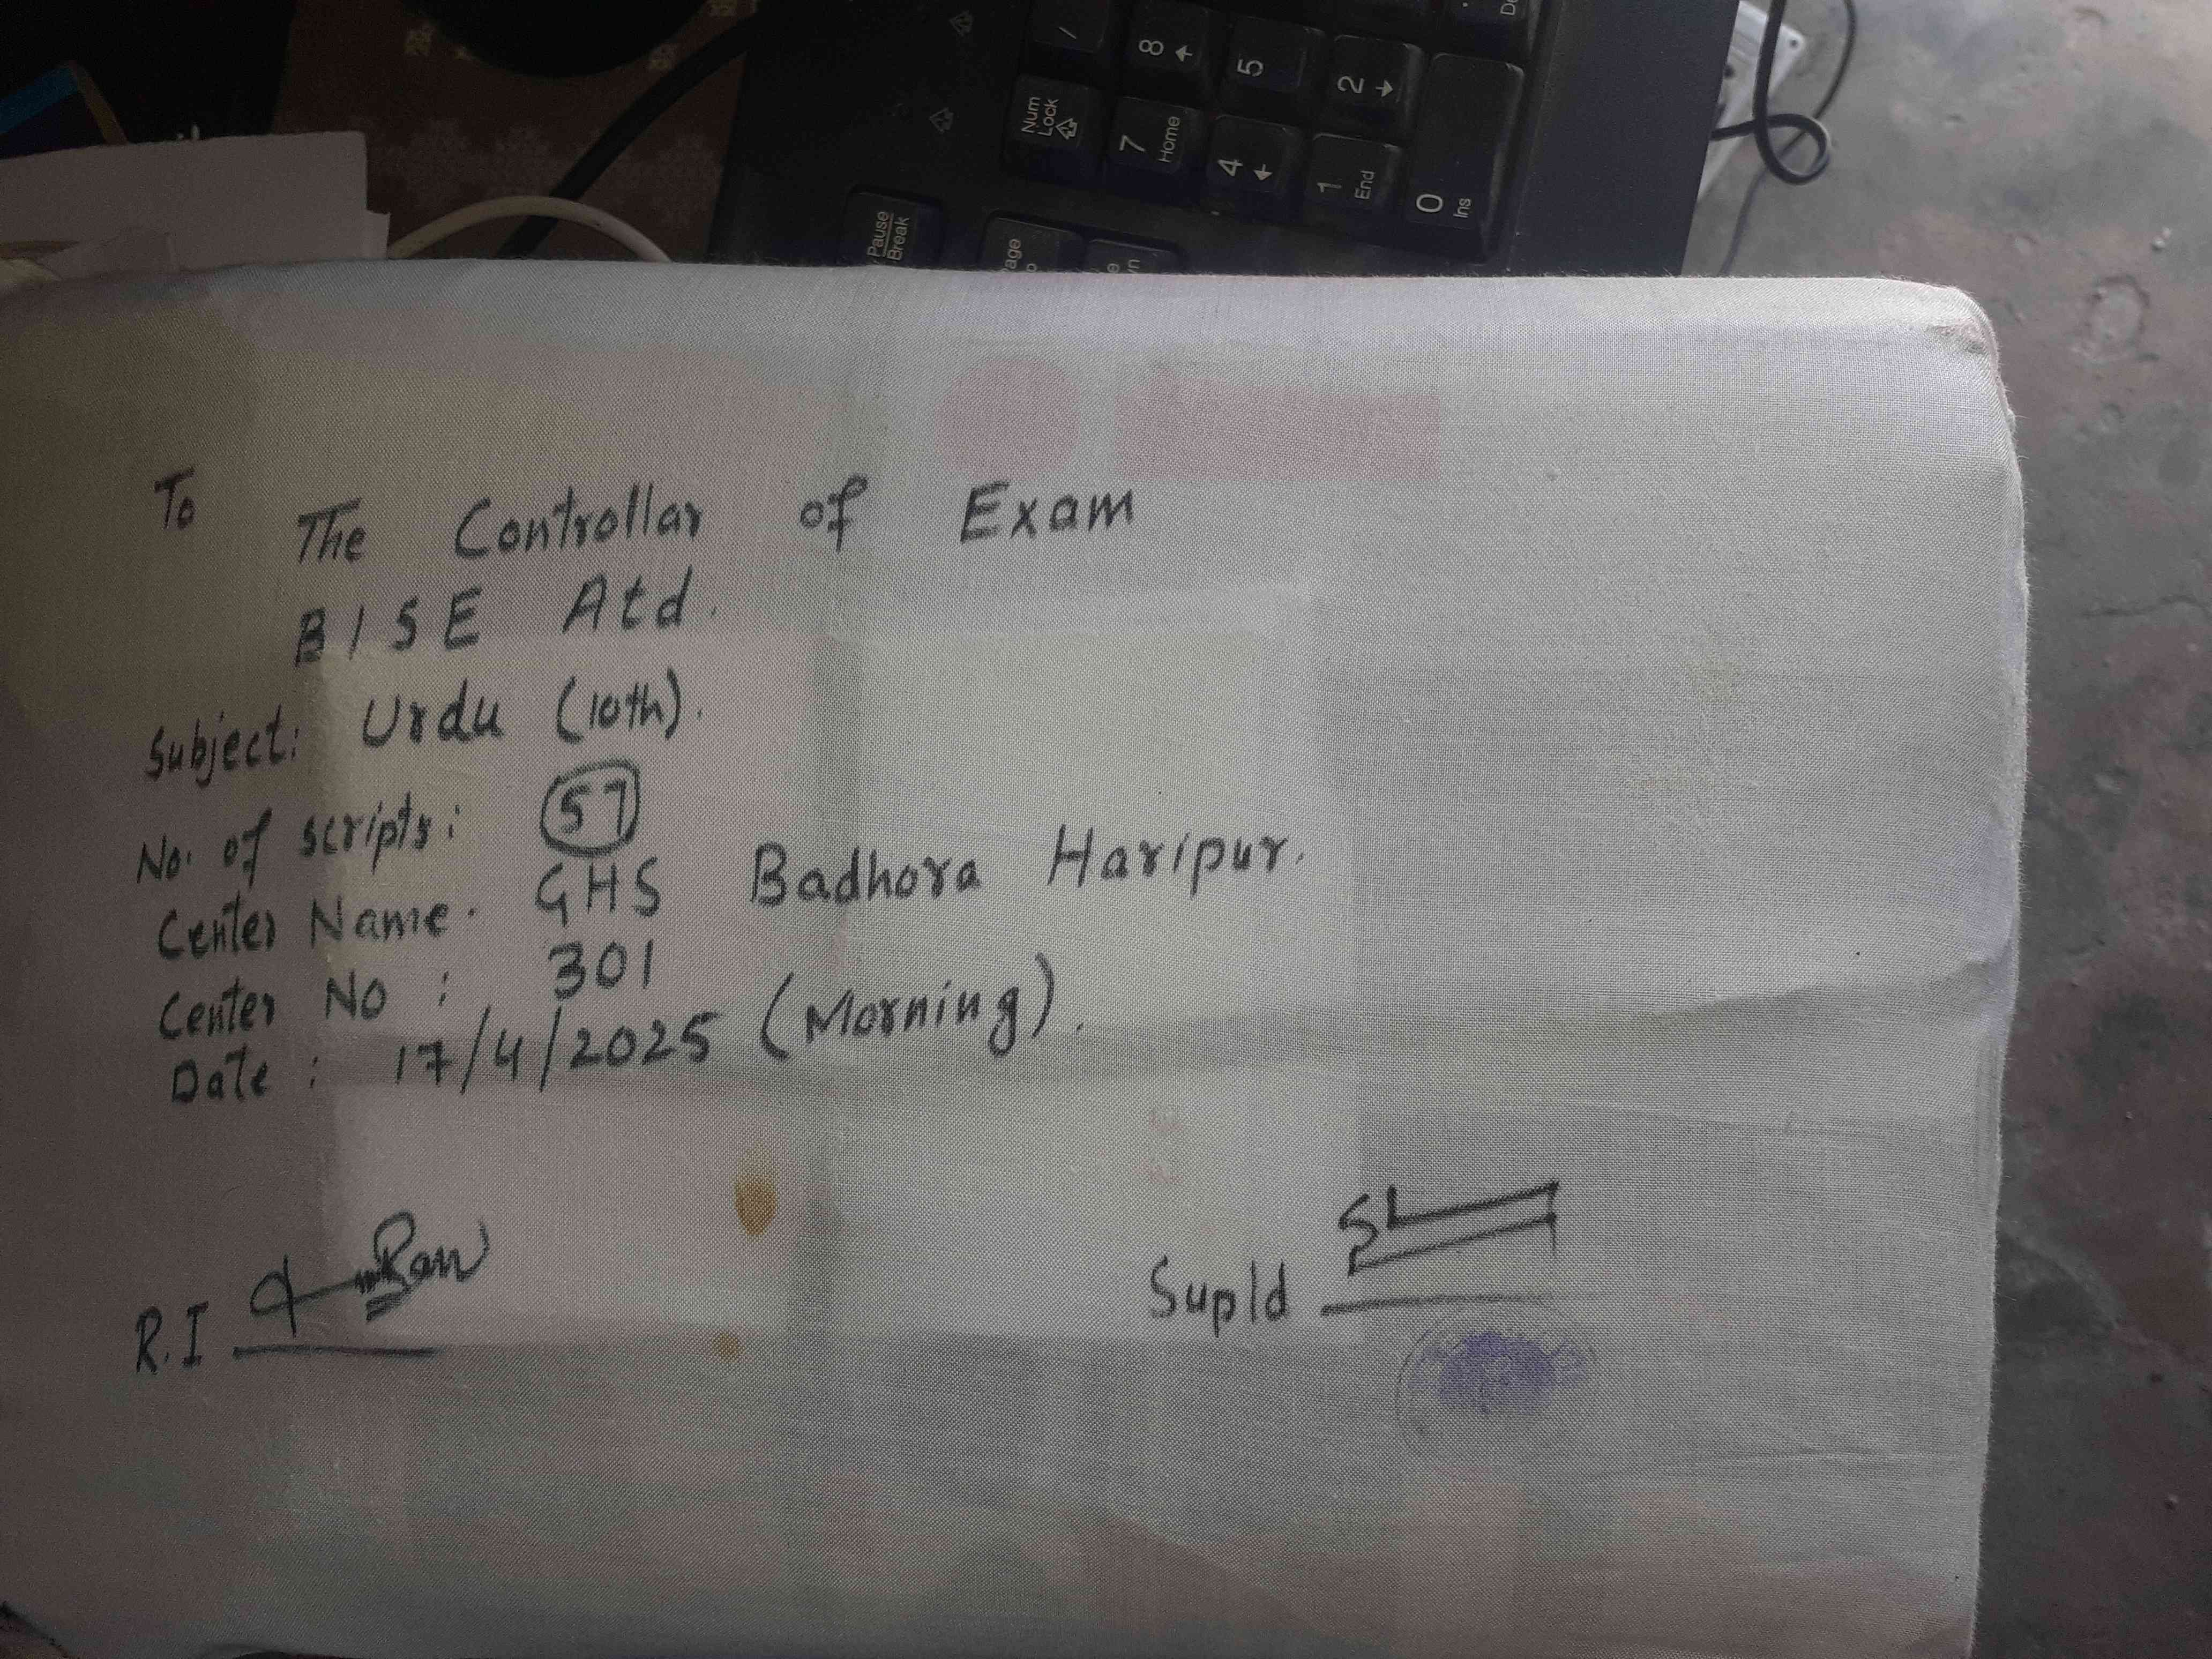 To
The Controllar of Exam
BISE Atd.
Subject: Urdu (10th).
No. of scripts: 57
Center Name. GHS Badhora Haripur.
Center No : 301
Date : 17/4/2025 (Morning).
R.I
Supld
/ 8 5 2
Num Lock 7 Home 4 1 End 0 Ins
Pause Break